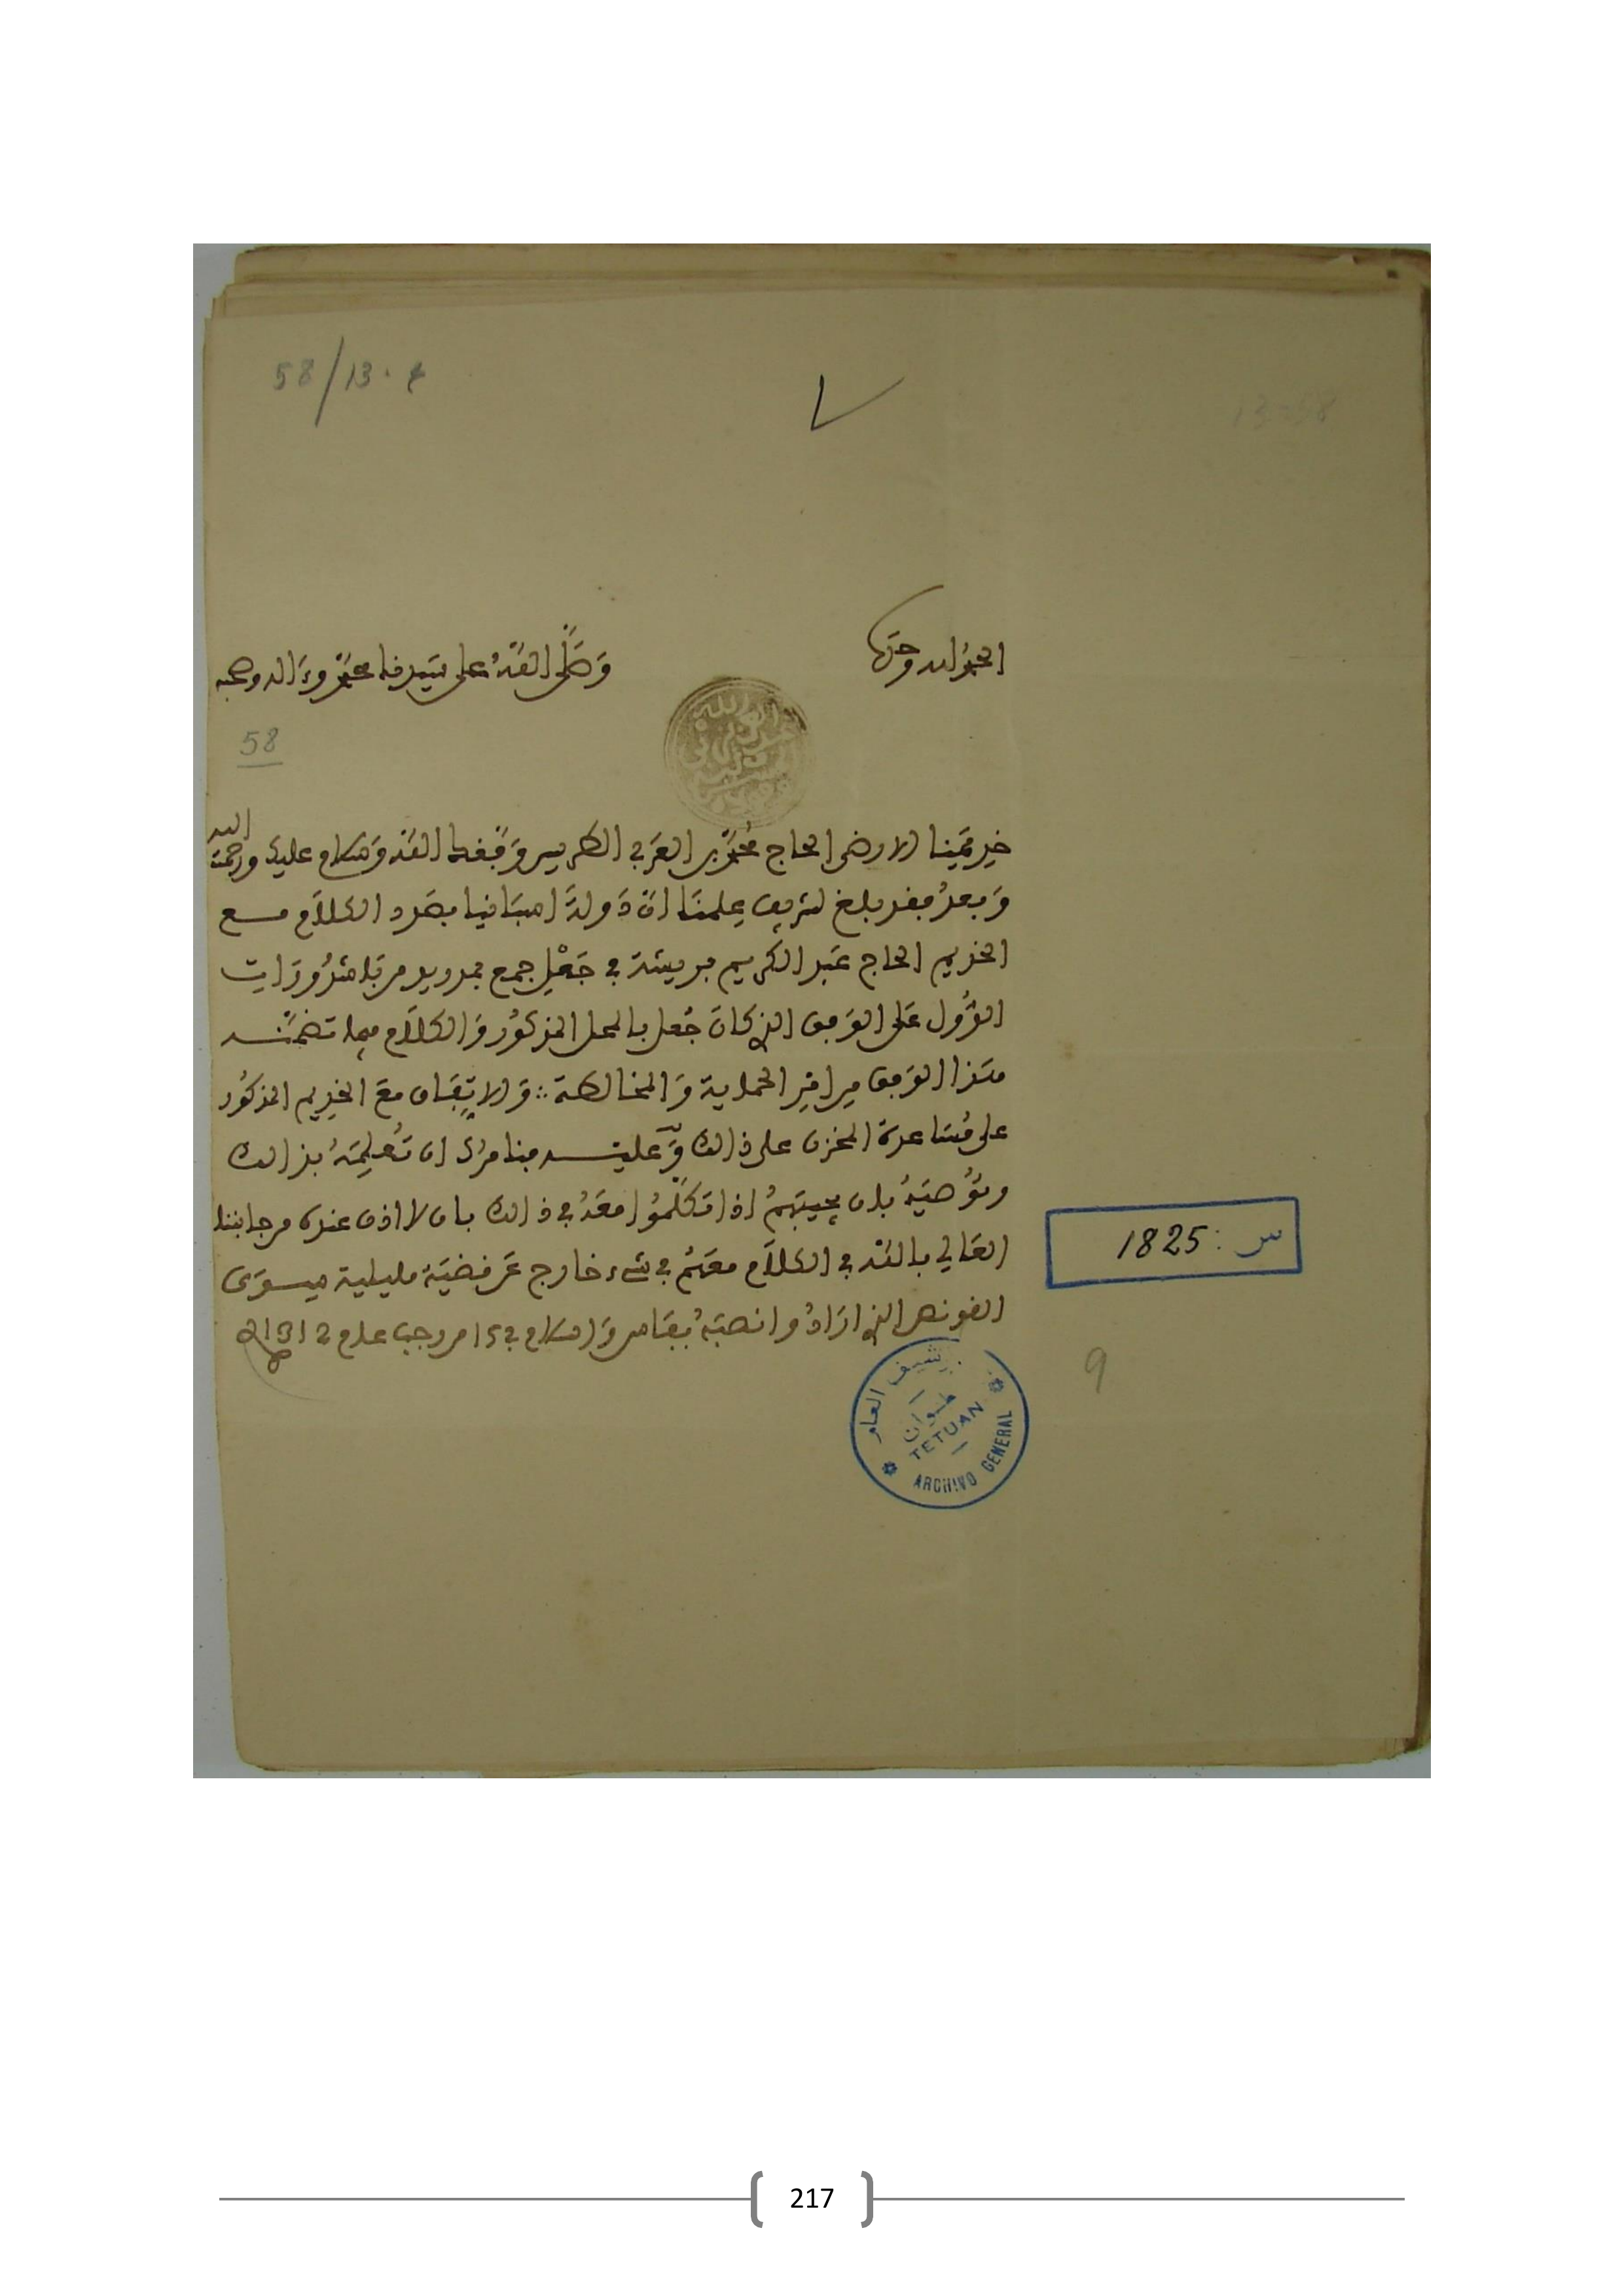 58/13.4
الحمد لله وحده
وَصَلَّى اللَّهُ على سَيِّدنا محمَّد وءَاله وصحبه
58
خدِيمَنا الارضى الحاج مُحَمَّد بن العرَبي الطريس وَفَّقك اللَّه وَسلام عليك ورحمة الله
وَبعدُ فقد بلغ لشريف عِلمنَا انَّ دَولةَ اصبَانيا بصدد الكلاَم مع
الخديم الحاج عبَد الكَريم بريشة في جَعْلِ جمع بمدريد من بَاشدُورَاتِ
الدُّول عَلَى الوَفق الذي كانَ جُعل بالمحل المذكوُر وَالكلاَم فيما تضمَّنه
هَذا الوَفق مِن امْرِ الحماية وَالمخالطة وَالاتِّفَاق معَ الخدِيم المذكُور
على مُسَاعدة المخزن على ذالك وَعليه فنامرُك ان تُعلِمَهُ بذالك
وتوُصيَهُ بان يجيبَهمُ اذا تكَلَّمُوا معَهُ في ذالك بان لا اذن عنده من جانبنا
العَالي بالله في الكلاَم معَهُم في شيء خارج عَن قضيَّة مليلية سِوَى
القونصو الذي ارَادُوا نصبَهُ بفَاس وَالسلام في 15 من رجب عام 1312
س : 1825
9
أرشيف العام
تطوان
TETUAN
ARCHIVO GENERAL
217